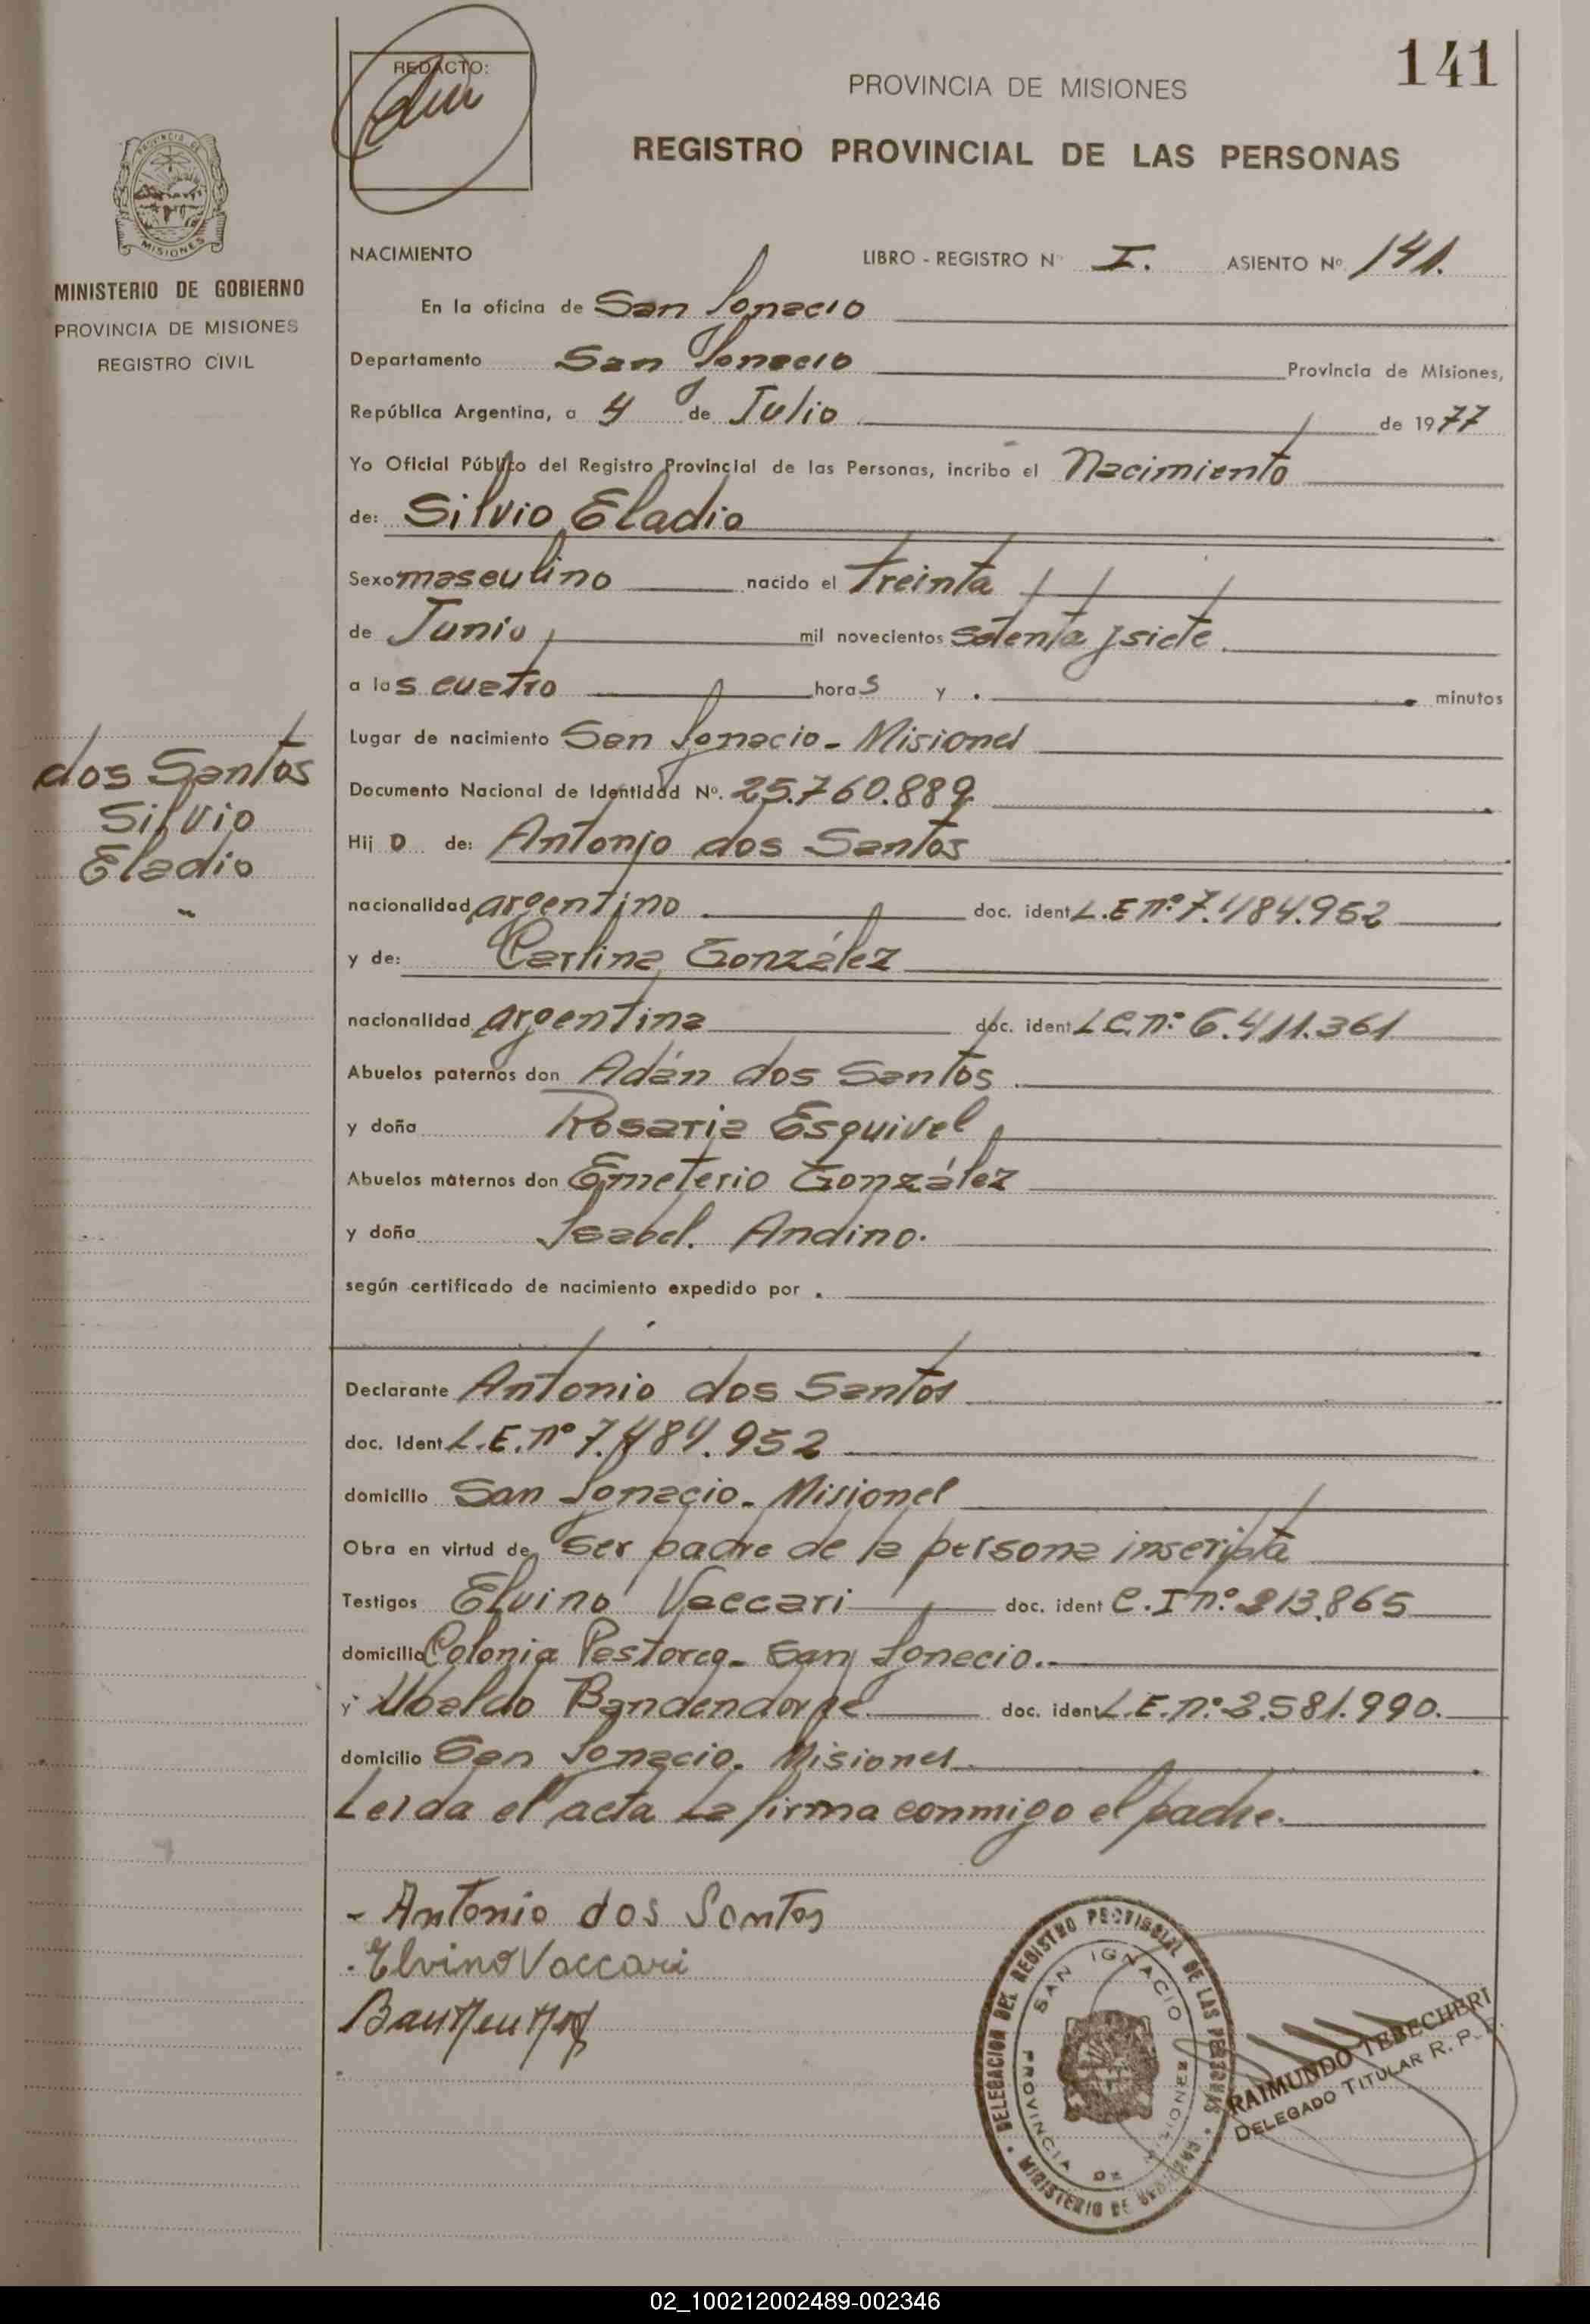 141
REDACTO:
PROVINCIA DE MISIONES
REGISTRO PROVINCIAL DE LAS PERSONAS
PROVINCIA DE
MISIONES
MINISTERIO DE GOBIERNO
PROVINCIA DE MISIONES
REGISTRO CIVIL
NACIMIENTO LIBRO - REGISTRO Nº I. ASIENTO Nº 141.
En la oficina de San Ignacio
Departamento San Ignacio Provincia de Misiones,
República Argentina, a 4 de Julio de 1977
Yo Oficial Público del Registro Provincial de las Personas, incribo el Nacimiento
de: Silvio Eladio
Sexo masculino nacido el treinta
de Junio, mil novecientos setenta y siete.
a las cuatro horas y . minutos
Lugar de nacimiento San Ignacio - Misiones
Documento Nacional de Identidad Nº. 25.760.889
Hijo de: Antonio dos Santos
nacionalidad argentino doc. ident L.E nº 7.484.952
y de: Carlina González
nacionalidad argentina doc. ident L.C. nº 6.411.361
Abuelos paternos don Adán dos Santos
y doña Rosaria Esquivel
Abuelos maternos don Emeterio González
y doña Isabel. Andino.
según certificado de nacimiento expedido por .
Declarante Antonio dos Santos
doc. Ident L.E. nº 7.484.952
domicilio San Ignacio - Misiones
Obra en virtud de ser padre de la persona inscripta
Testigos Elvino Vaccari doc. ident C.I nº 213.865
domicilio Colonia Pastoreo - San Ignacio.-
y Ubaldo doc. ident L.E. nº 2.581.990.
domicilio San Ignacio. Misiones
Leida el acta la firma conmigo el padre.
dos Santos
Silvio
Eladio
- Antonio dos Santos
Elvino Vaccari
DELEGACION DEL REGISTRO PROVINCIAL DE LAS PERSONAS
MINISTERIO DE GOBIERNO
SAN IGNACIO
PROVINCIA DE MISIONES
RAIMUNDO TEBECHERI
DELEGADO TITULAR R. P. P.
02_100212002489-002346